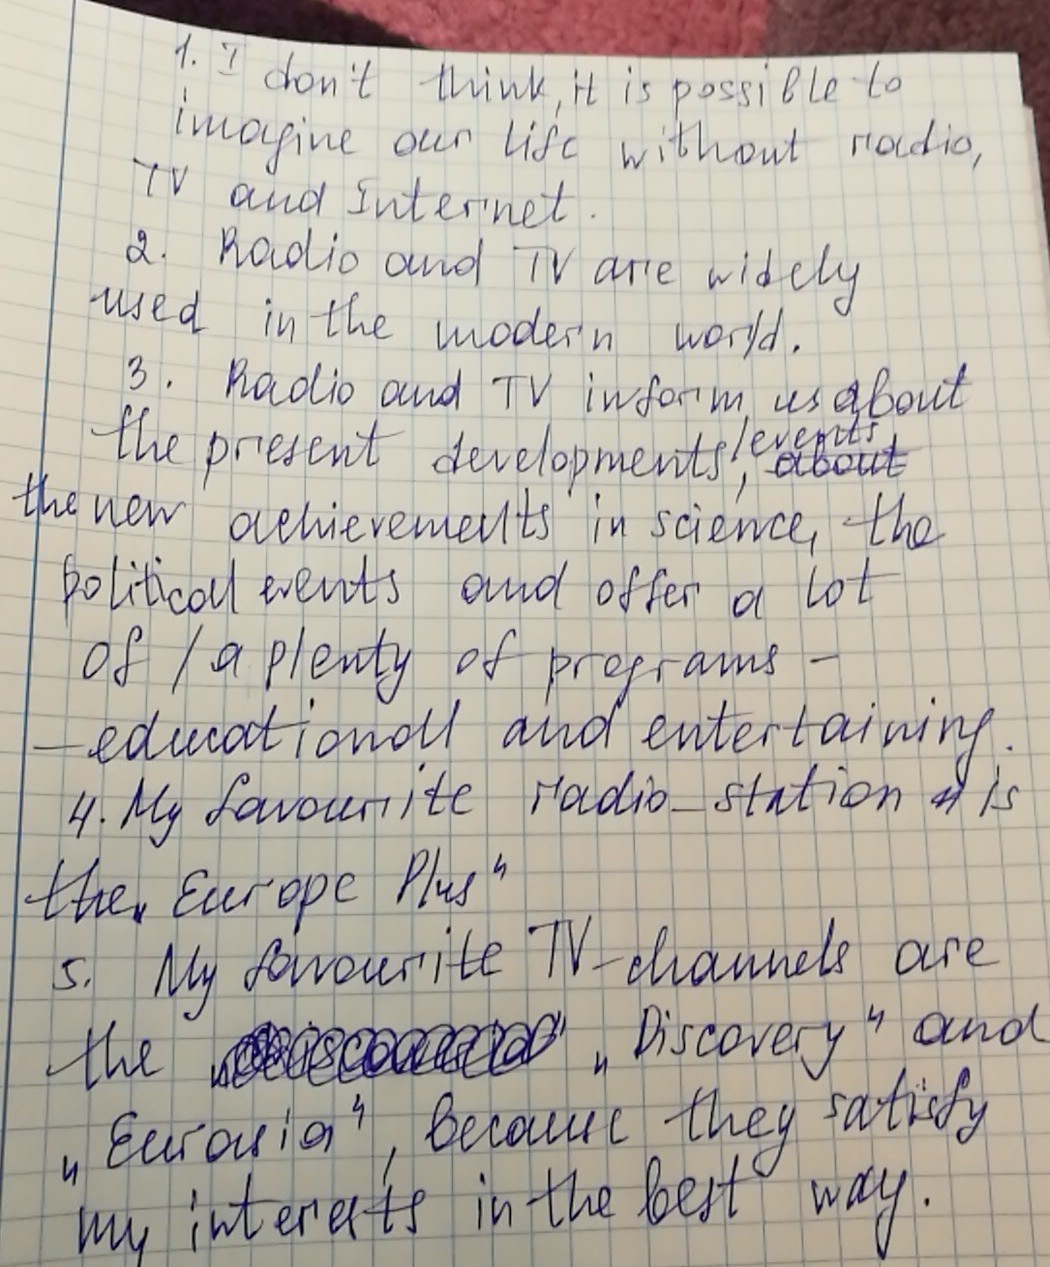 1. I don't think, it is possible to
imagine our life without radio,
TV and Internet.
2. Radio and TV are widely
used in the modern world.
3. Radio and TV inform us about
the present developments/events, about
the new achievements in science, the
political events and offer a lot
of / a plenty of programs -
- educationall and entertaining.
4. My favourite radio-station is
the „Europe Plus"
5. My favourite TV-channels are
the „Discovery" and
„Eurasia", because they satisfy
my interests in the best way.